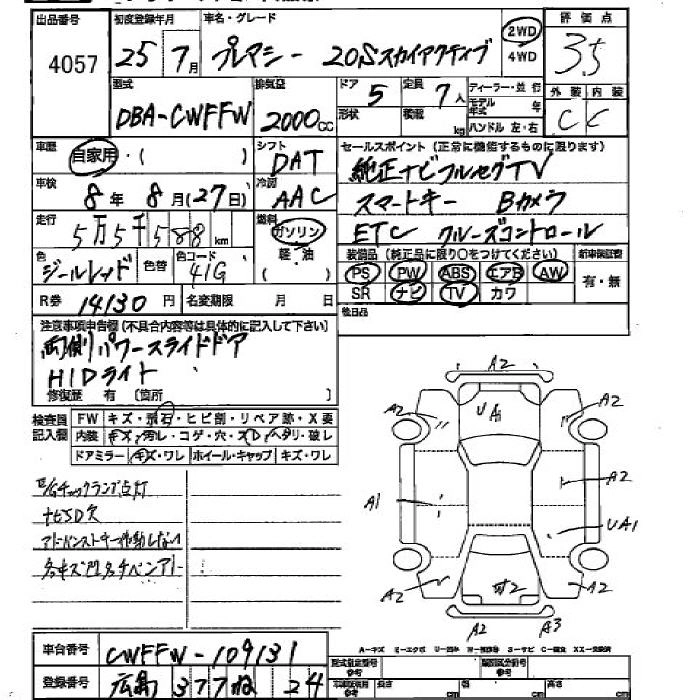 出品番号 初度登録年月 車名・グレード 2WD 4WD 評価点
4057 25年7月 プレマシー 20Sスカイアクティブ 3.5
型式 排気量 ドア 定員 ディーラー・並行 外装 内装
DBA-CWFFW 2000CC 5 7人 モデル年式 年 C C
形状 積載 kg ハンドル 左・右
車歴 自家用・( ) シフト DAT
セールスポイント (正常に機能するものに限ります)
車検 8年 8月(27日) 冷房 AAC
純正ナビフルセグTV
スマートキー Bカメラ
ETC クルーズコントロール
走行 5万5千588km 燃料 ガソリン 軽・油 ( )
色 ジールレッド 色替 色コード 41G
装備品 (純正品に限り○をつけてください) 新車保証書
PS PW ABS エアB AW 有・無
SR ナビ TV カワ
R券 14130円 名変期限 月 日
後日品
注意事項申告欄(不具合内容等は具体的に記入して下さい)
両側パワースライドドア
HIDライト
修復歴 有 〔箇所
検査員記入欄 FW キズ・飛石・ヒビ割・リペア跡・X要
内装 キズ・汚レ・コゲ・穴・スレ・ヘタリ・破レ
ドアミラー キズ・ワレ ホイール・キャップ キズ・ワレ
E/Gチェックランプ点灯
ナビSD欠
アドバンストキー作動しない
各キズ凹各チペンアト
A2
A2 UA1 A2
A1 A2
UA1
A2 A2
A2 A3
A-キズ E-エクボ U-凹ミ W-補修跡 S-サビ C-腐食 XX-交換済
車台番号 CWFFW-109131
登録番号 広島 377 ね 24
型式指定番号 類別区分番号
参考 長さ cm 幅 cm 高さ cm